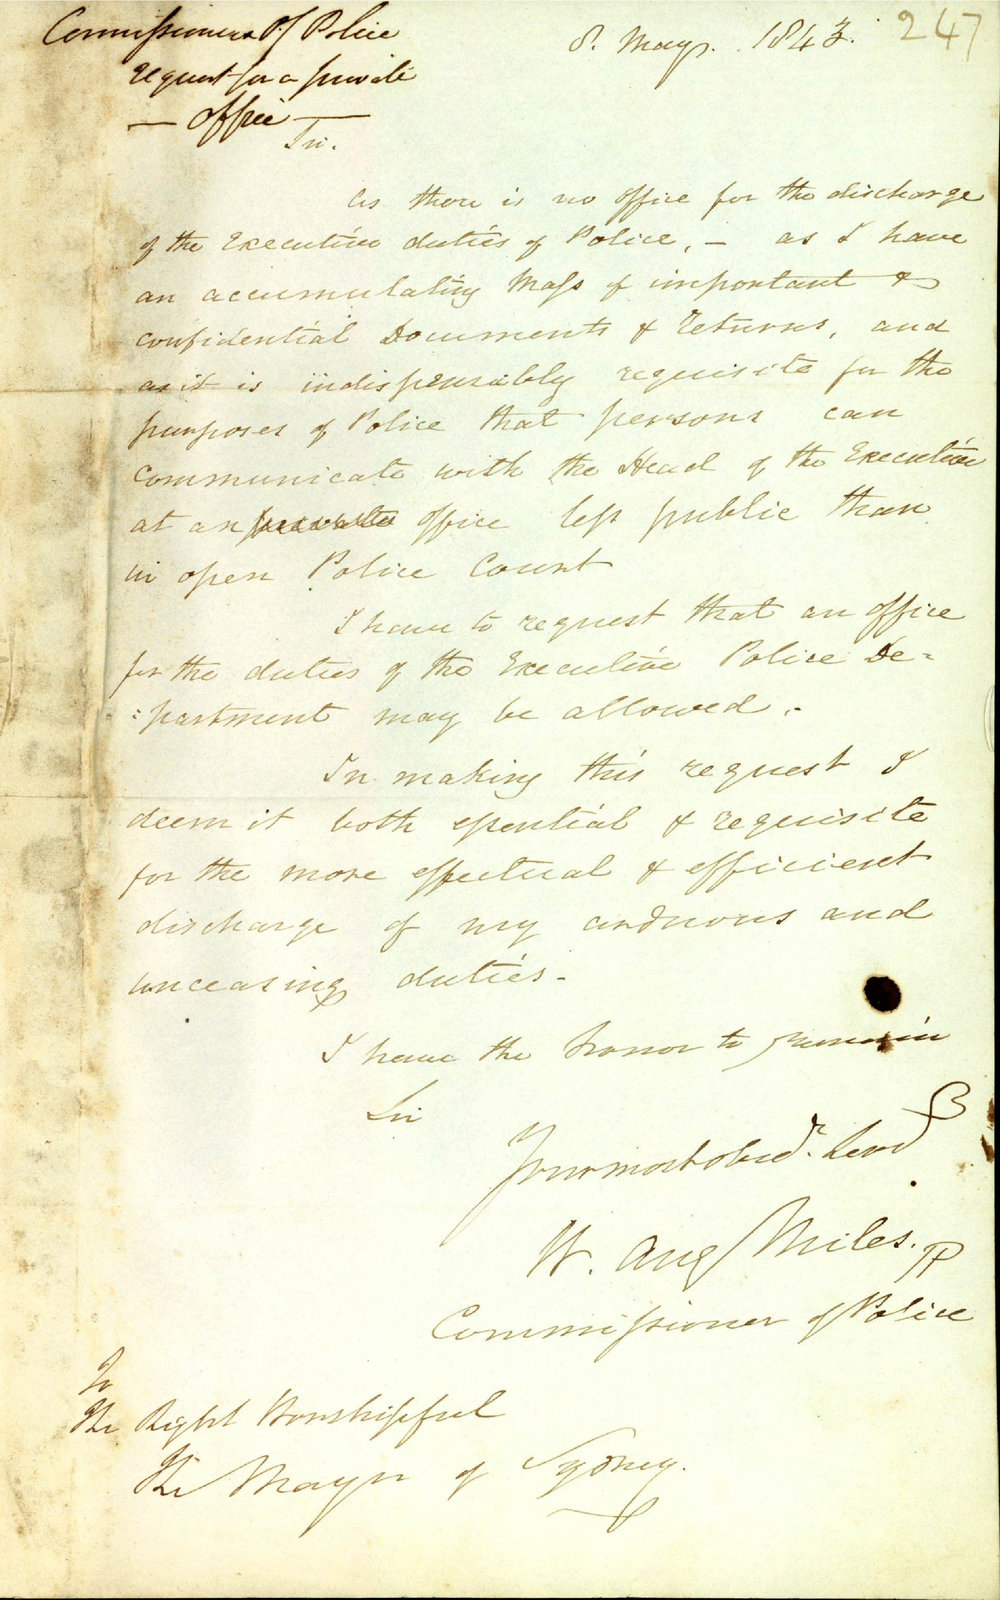 Commissioner Of Police
request for a private
— office —
8. May. 1843.
247
Sir.
As there is no office for the discharge
of the Executive duties of Police, — as I have
an accumulating Mass of important &
confidential Documents & returns, and
as it is indispensably requisite for the
purposes of Police that persons can
communicate with the Head of the Executive
at an private office less public than
in open Police Court
I have to request that an office
for the duties of the Executive Police De=
=partment may be allowed.
In making this request I
deem it both essential & requisite
for the more effectual & efficient
discharge of my arduous and
unceasing duties.
I have the honor to remain
Sir
Your most obedt. Servt
W. Aug Miles. JP
Commissioner of Police
To
The Right Worshipful
The Mayor of Sydney.